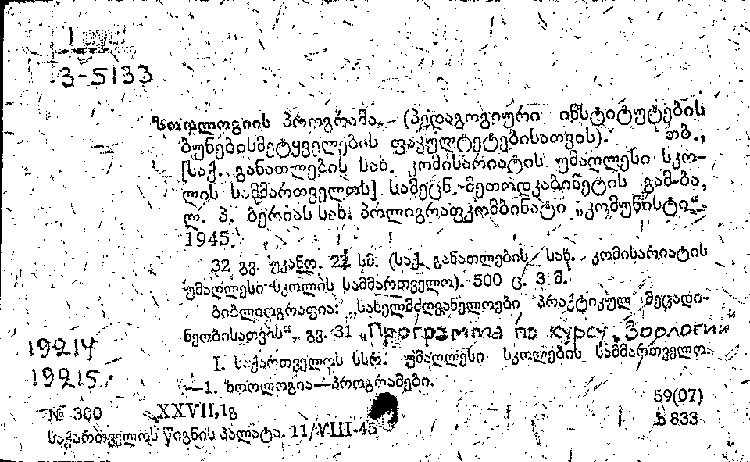 3-5133
ზოოლოგიის პროგრამა. (პედაგოგიური ინსტიტუტების
ბუნებისმეტყველების ფაკულტეტებისათვის). თბ.,
[საქ. განათლების სახ. კომისარიატის უმაღლესი სკო-
ლის სამმართველოს] სამეცნ.-მეთოდკაბინეტის გამ-ბა,
ლ. პ. ბერიას სახ. პოლიგრაფკომბინატი „კომუნისტი“,
1945.
32 გვ. უკანდ. 22 სმ. (საქ. განათლების სახ. კომისარიატის
უმაღლესი სკოლის სამმართველო). 500 ც. 3 მ.
ბიბლიოგრაფია: „სახელმძღვანელოები პრაქტიკულ მეცადი-
ნეობისათვის“, გვ. 31 „Программа по курсу Зоологии
I. საქართველოს სსრ. უმაღლესი სკოლების სამმართველო.
—1. ზოოლოგია—პროგრამები.
19214
19215
59(07)
№ 300 XXVII,1გ
საქართველოს წიგნის პალატა. 11/VIII-45